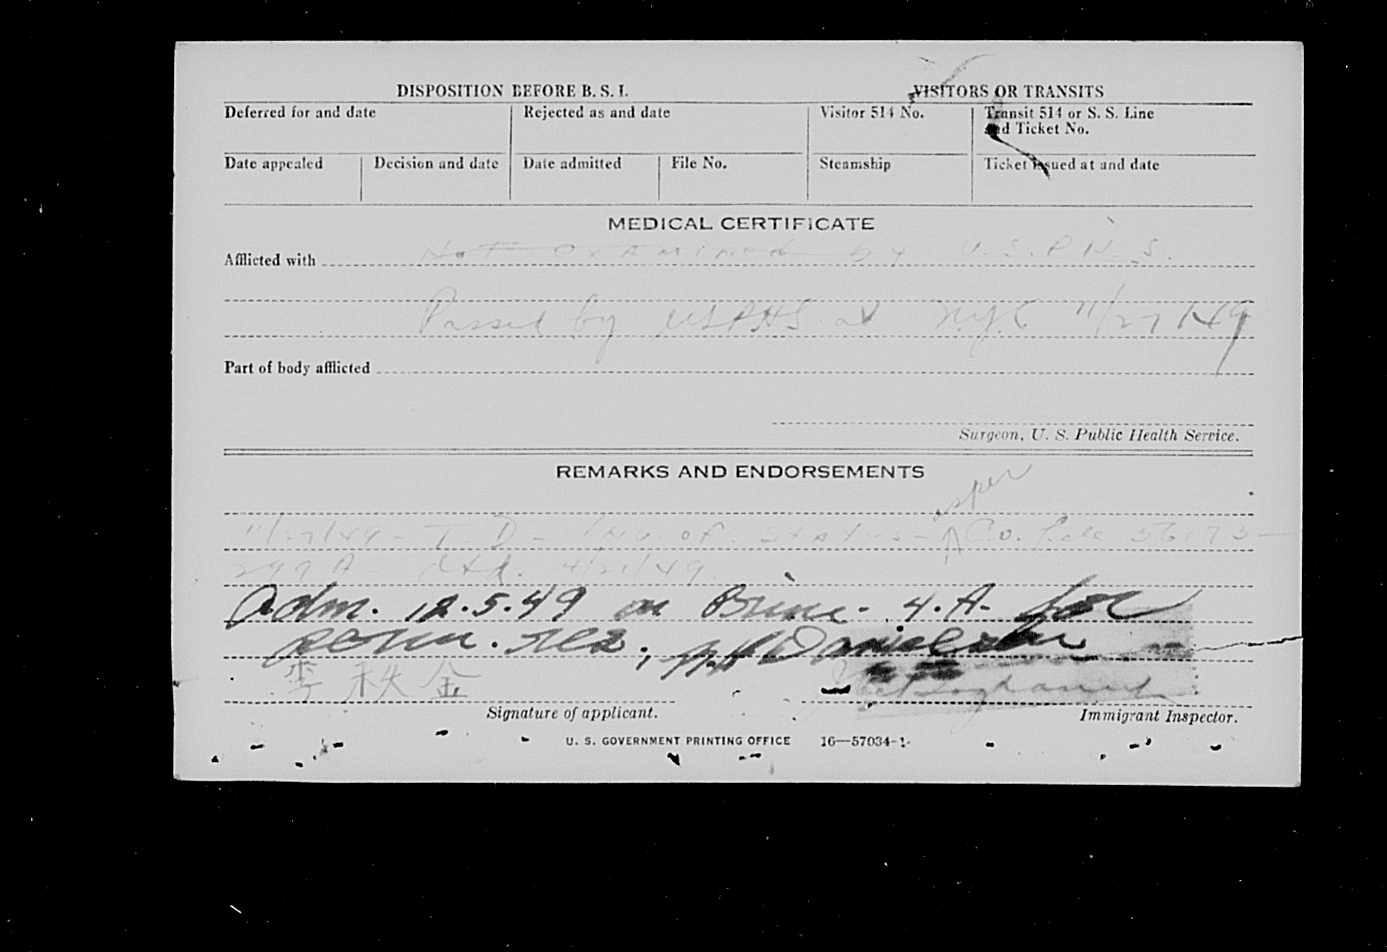 DISPOSITION BEFORE B. S. I.
VISITORS OR TRANSITS
Deferred for and date
Rejected as and date
Visitor 514 No.
Transit 514 or S. S. Line and Ticket No.
Date appealed
Decision and date
Date admitted
File No.
Steamship
Ticket issued at and date
MEDICAL CERTIFICATE
Afflicted with Not examined by U.S.P.H.S.
Passed by USPHS at N.Y.C 11/27/49
Part of body afflicted
Surgeon, U. S. Public Health Service.
REMARKS AND ENDORSEMENTS
per
11/27/49 - T.D - of status - Co. 56173-
299 A - dtd. 4/21/49
Adm. 12.5.49 on Prime. 4.A. for
perm. res.
李秩金
Signature of applicant.
Immigrant Inspector.
U. S. GOVERNMENT PRINTING OFFICE 16—57034-1